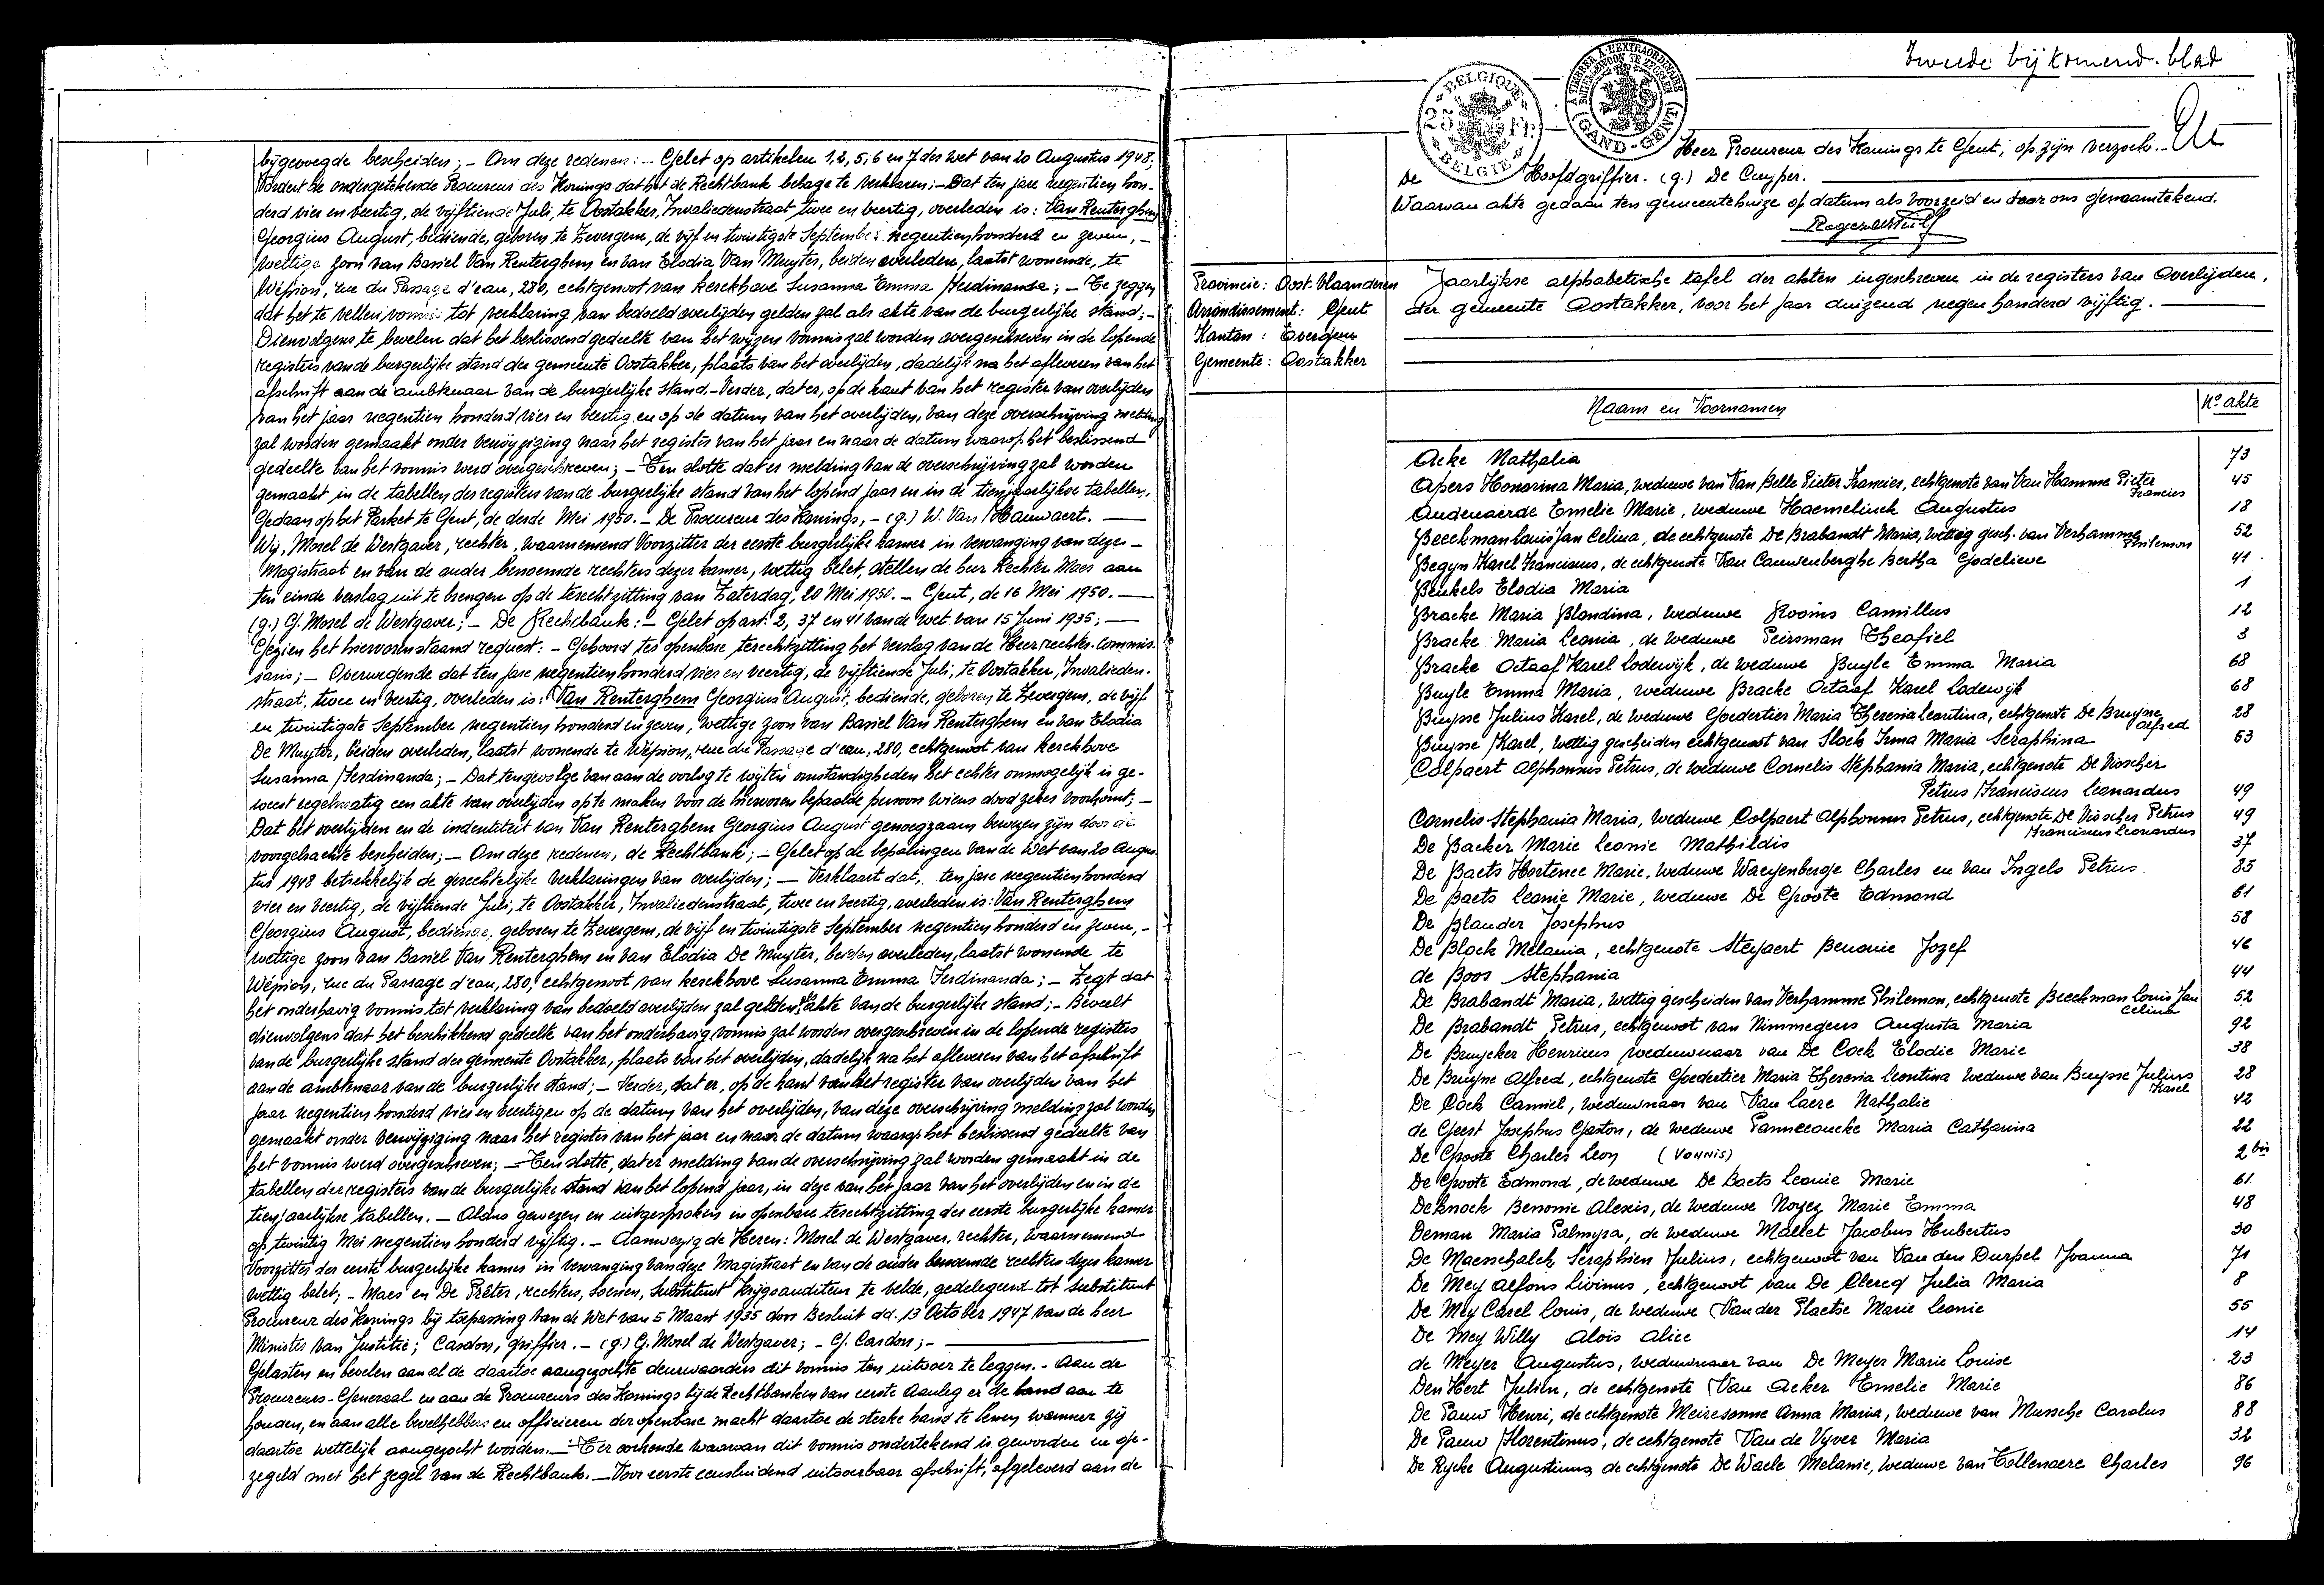 bijgevoegde bescheiden; - Om deze redenen: - Gelet op artikelen 1, 2, 5, 6 en 7 der wet van 20 Augustus 1948,
Vordert de ondergetekende Procureur des Konings dat het de Rechtbank behage te verklaren: - Dat ten jare negentien hon-
derd vier en veertig, de vijftiende Juli, te Oostakker, Invaliedenstraat twee en veertig, overleden is: Van Renterghem
Georgius August, bediende, geboren te Zevergem, de vijf en twintigste September negentienhonderd en zeven, -
wettige zoon van Basiel Van Renterghem en van Elodia Van Muyter, beiden overleden, laatst wonende, te
Wépion, rue du Passage d'eau, 280, echtgenoot van Kerckhove Susanna Emma Ferdinanda; - Te zeggen
dat het te vellen vonnis tot verklaring van bedoeld overlijden gelden zal als akte van de burgerlijke stand; -
Dienvolgens te bevelen dat het beslissend gedeelte van het wijzen vonnis zal worden overgeschreven in de lopende
registers van de burgerlijke stand der gemeente Oostakker, plaats van het overlijden, dadelijk na het afleveren van het
afschrift aan de ambtenaar van de burgerlijke stand. - Verder, dat er, op de kant van het register van overlijden
van het jaar negentien honderd vier en veertig en op de datum van het overlijden, van deze overschrijving melding
zal worden gemaakt onder verwijziging naar het register van het jaar en naar de datum waarop het beslissend
gedeelte van het vonnis werd overgeschreven; - Ten slotte dat er melding van de overschrijving zal worden
gemaakt in de tabellen der registers van de burgerlijke stand van het lopend jaar en in de tienjaarlijkse tabellen.
Gedaan op het Parket te Gent, de derde Mei 1950. - De Procureur des Konings, - (g.) W. Van Hauwaert.
Wij, Morel de Westgaver, rechter, waarnemend Voorzitter der eerste burgerlijke kamer in vervanging van deze -
Magistraat en van de ander benoemde rechters dezer kamer, wettig belet, stellen de heer Rechter Maes aan
ten einde verslag uit te brengen op de terechtzitting van Zaterdag, 20 Mei 1950. - Gent, de 16 Mei 1950.
(g.) G. Morel de Westgaver; - De Rechtbank: - Gelet op art. 2, 37 en 41 van de wet van 15 Juni 1935;
Gezien het hiervorenstaand request: - Gehoord ter openbare terechtzitting het verslag van de Heer rechter-commis-
saris; - Overwegende dat ten jare negentien honderd vier en veertig, de vijftiende Juli, te Oostakker, Invalieden-
straat, twee en veertig, overleden is: Van Renterghem Georgius August, bediende, geboren te Zevergem, de vijf
en twintigste September negentien honderd en zeven, wettige zoon van Basiel Van Renterghem en van Elodia
De Muyter, beiden overleden, laatst wonende te Wépion, rue du Passage d'eau, 280, echtgenoot van Kerckhove
Susanna Ferdinanda; - Dat, tengevolge van aan de oorlog te wijten omstandigheden het echter onmogelijk is ge-
weest regelmatig een akte van overlijden op te maken voor de hiervoren bepaalde persoon wiens dood zeker voorkomt; -
Dat het overlijden en de indentiteit van Van Renterghem Georgius August genoegzaam bewezen zijn door de
voorgebrachte bescheiden; - Om deze redenen, de Rechtbank; - Gelet op de bepalingen van de Wet van 20 Augus-
tus 1948 betrekkelijk de gerechtelijke verklaringen van overlijden; - Verklaart dat, ten jare negentienhonderd
vier en veertig, de vijftiende Juli, te Oostakker, Invaliedenstraat, twee en veertig, overleden is: Van Renterghem
Georgius August, bediende, geboren te Zevergem, de vijf en twintigste September negentien honderd en zeven, -
wettige zoon van Basiel Van Renterghem en van Elodia De Muyter, beiden overleden, laatst wonende te
Wépion, rue du Passage d'eau, 280, echtgenoot van Kerckhove Susanna Emma Ferdinanda; - Zegt dat
het onderhavig vonnis tot verklaring van bedoeld overlijden zal gelden als akte van de burgerlijke stand; - Beveelt
dienvolgens dat het beschikkend gedeelte van het onderhavig vonnis zal worden overgeschreven in de lopende registers
van de burgerlijke stand der gemeente Oostakker, plaats van het overlijden, dadelijk na het afleveren van het afschrift
aan de ambtenaar van de burgerlijke stand; - Verder, dat er, op de kant van het register van overlijden van het
jaar negentien honderd vier en veertig en op de datum van het overlijden, van deze overschrijving melding zal worden
gemaakt onder verwijziging naar het register van het jaar en naar de datum waarop het beslissend gedeelte van
het vonnis werd overgeschreven; - Ten slotte, dat er melding van de overschrijving zal worden gemaakt in de
tabellen der registers van de burgerlijke stand van het lopend jaar, in deze van het jaar van het overlijden en in de
tienjaarlijkse tabellen. - Aldus gewezen en uitgesproken in openbare terechtzitting der eerste burgerlijke kamer
op twintig Mei negentien honderd vijftig. - Aanwezig de Heren: Morel de Westgaver, rechter, waarnemend
Voorzitter der eerste burgerlijke kamer in vervanging van deze Magistraat en van de ander benoemde rechters dezer kamer
wettig belet; - Maes en De Prêter, rechters, Soenen, Substituut Krijgsauditeur te velde, gedelegeerd tot substituut
Procureur des Konings bij toepassing van de Wet van 5 Maart 1935 door Besluit dd. 13 October 1947 van de heer
Minister van Justitie; Cardon, griffier. - (g.) G. Morel de Westgaver; - G. Cardon; -
Gelasten en bevelen aan al de daartoe aangezochte deurwaarders dit vonnis ten uitvoer te leggen. - Aan de
Procureurs-Generaal en aan de Procureurs des Konings bij de Rechtbanken van eerste Aanleg er de hand aan te
houden, en aan alle bevelhebbers en officieren der openbare macht daartoe de sterke hand te lenen wanneer zij
daartoe wettelijk aangezocht worden. - Ter oorkonde waarvan dit vonnis ondertekend is geworden en ge-
zegeld met het zegel van de Rechtbank. - Voor eerste eensluidend uitvoerbaar afschrift, afgeleverd aan de
Tweede bijkomend blad
BELGIQUE 25 Fr. BELGIE
A TIMBRER A L'EXTRAORDINAIRE BUITENGEWOON TE ZEGELEN (GAND-GENT)
Heer Procureur des Konings te Gent, op zijn verzoek. -
De Hoofdgriffier. (g.) De Cuyper.
Waarvan akte gedaan ten gemeentehuize op datum als voorzeid en door ons genaamtekend.
Provincie: Oost-Vlaanderen
Arrondissement: Gent
Kanton: Evergem
Gemeente: Oostakker
Jaarlijkse alphabetische tafel der akten ingeschreven in de registers van Overlijden,
der gemeente Oostakker, voor het jaar duizend negen honderd vijftig.
Naam en Voornamen N° akte
Acke Nathalia 73
Apers Honorina Maria, weduwe van Van Belle Pieter Francies, echtgenote van Van Hamme Pieter Francies 45
Audenaerde Emelie Marie, weduwe Haemelinck Augustus 18
Beeckman Louis Jan Celina, de echtgenote De Brabandt Maria, wettig gesch. van Verhamme Philemon 52
Begyn Karel Franciscus, de echtgenote Van Cauwenberghe Bertha Godelieve 41
Benkels Elodia Maria 1
Bracke Maria Blandina, weduwe Rooms Camillus 12
Bracke Maria Leonia, de weduwe Peirsman Theofiel 3
Bracke Octaaf Karel Lodewijk, de weduwe Buyle Emma Maria 68
Buyle Emma Maria, weduwe Bracke Octaaf Karel Lodewijk 68
Buysse Julius Karel, de weduwe Goedertier Maria Theresia Leontina, echtgenote De Bruyne Alfred 28
Buysse Karel, wettig gescheiden echtgenoot van Slock Irma Maria Seraphina 63
Colpaert Alphonsus Petrus, de weduwe Cornelis Stephania Maria, echtgenote De Visscher
Petrus Franciscus Leonardus 49
Cornelis Stephania Maria, weduwe Colpaert Alphonsus Petrus, echtgenote De Visscher Petrus Franciscus Leonardus 49
De Backer Marie Leonie Mathildis 37
De Baets Hortence Marie, weduwe Waeyenberge Charles en van Ingels Petrus 85
De Baets Leonie Marie, weduwe De Groote Edmond 61
De Blander Josephus 58
De Block Melania, echtgenote Steyaert Benonie Jozef 46
de Boos Stephania 44
De Brabandt Maria, wettig gescheiden van Verhamme Philemon, echtgenote Beeckman Louis Jan Celina 52
De Brabandt Petrus, echtgenoot van Nimmegeers Augusta Maria 92
De Bruycker Henricus weduwnaar van De Cock Elodie Marie 38
De Bruyne Alfred, echtgenote Goedertier Maria Theresia Leontina weduwe van Buysse Julius Karel 28
De Cock Camiel, weduwnaar van Van Laere Nathalie 42
de Geest Josephus Gaston, de weduwe Pannecoucke Maria Catharina 22
De Groote Charles Leon (VONNIS) 2 bis
De Groote Edmond, de weduwe De Baets Leonie Marie 61
Deknock Benonie Alexis, de weduwe Noyez Marie Emma 48
Deman Maria Palmyra, de weduwe Mallet Jacobus Hubertus 30
De Maesschalck Seraphien Julius, echtgenoot van Van den Durpel Joanna 71
De Mey Alfons Livinus, echtgenoot van De Clercq Julia Maria 8
De Mey Carel Louis, de weduwe Van der Plaetse Marie Leonie 55
De Mey Willy Aloïs Alice 14
de Meyer Augustus, weduwnaar van De Meyer Marie Louise 23
Den Hert Julien, de echtgenote Van Acker Emelie Marie 86
De Pauw Henri, de echtgenote Meiresonne Anna Maria, weduwe van Mussche Carolus 88
De Pauw Florentinus, de echtgenote Van de Vyver Maria 32
De Rycke Augustinus, de echtgenote De Waele Melanie, weduwe van Tollenaere Charles 96